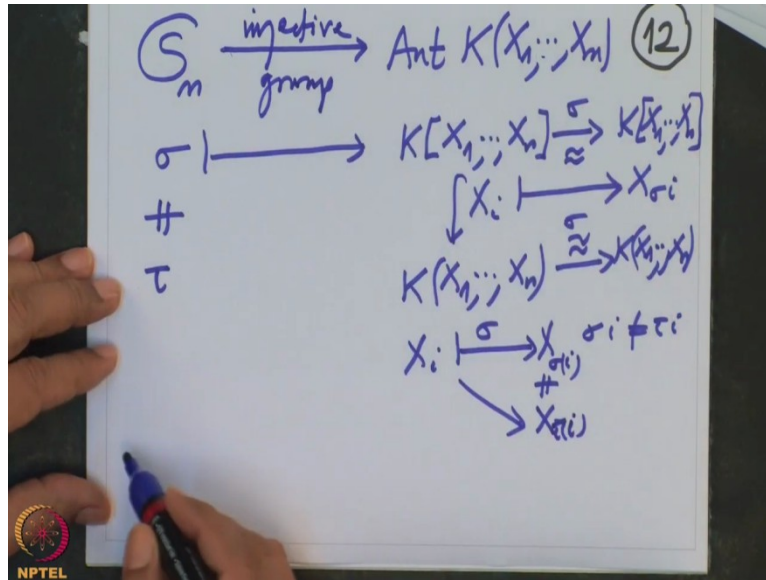 S_n injective group → Aut K(X_1,...,X_n) 12
σ ↦ K[X_1,...,X_n] σ ≈ → K[X_1,...,X_n]
≠ X_i ↦ X_σi
τ K(X_1,...,X_n) σ ≈ → K(X_1,...,X_n)
X_i ↦ σ X_σ(i) σi ≠ τi
≠
X_τ(i)
NPTEL